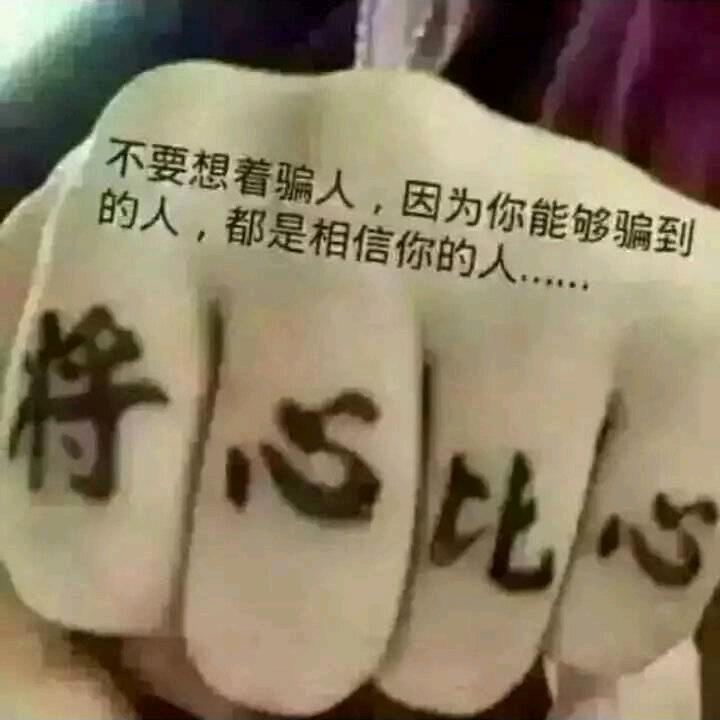 不要想着骗人，因为你能够骗到
的人，都是相信你的人……
将心比心